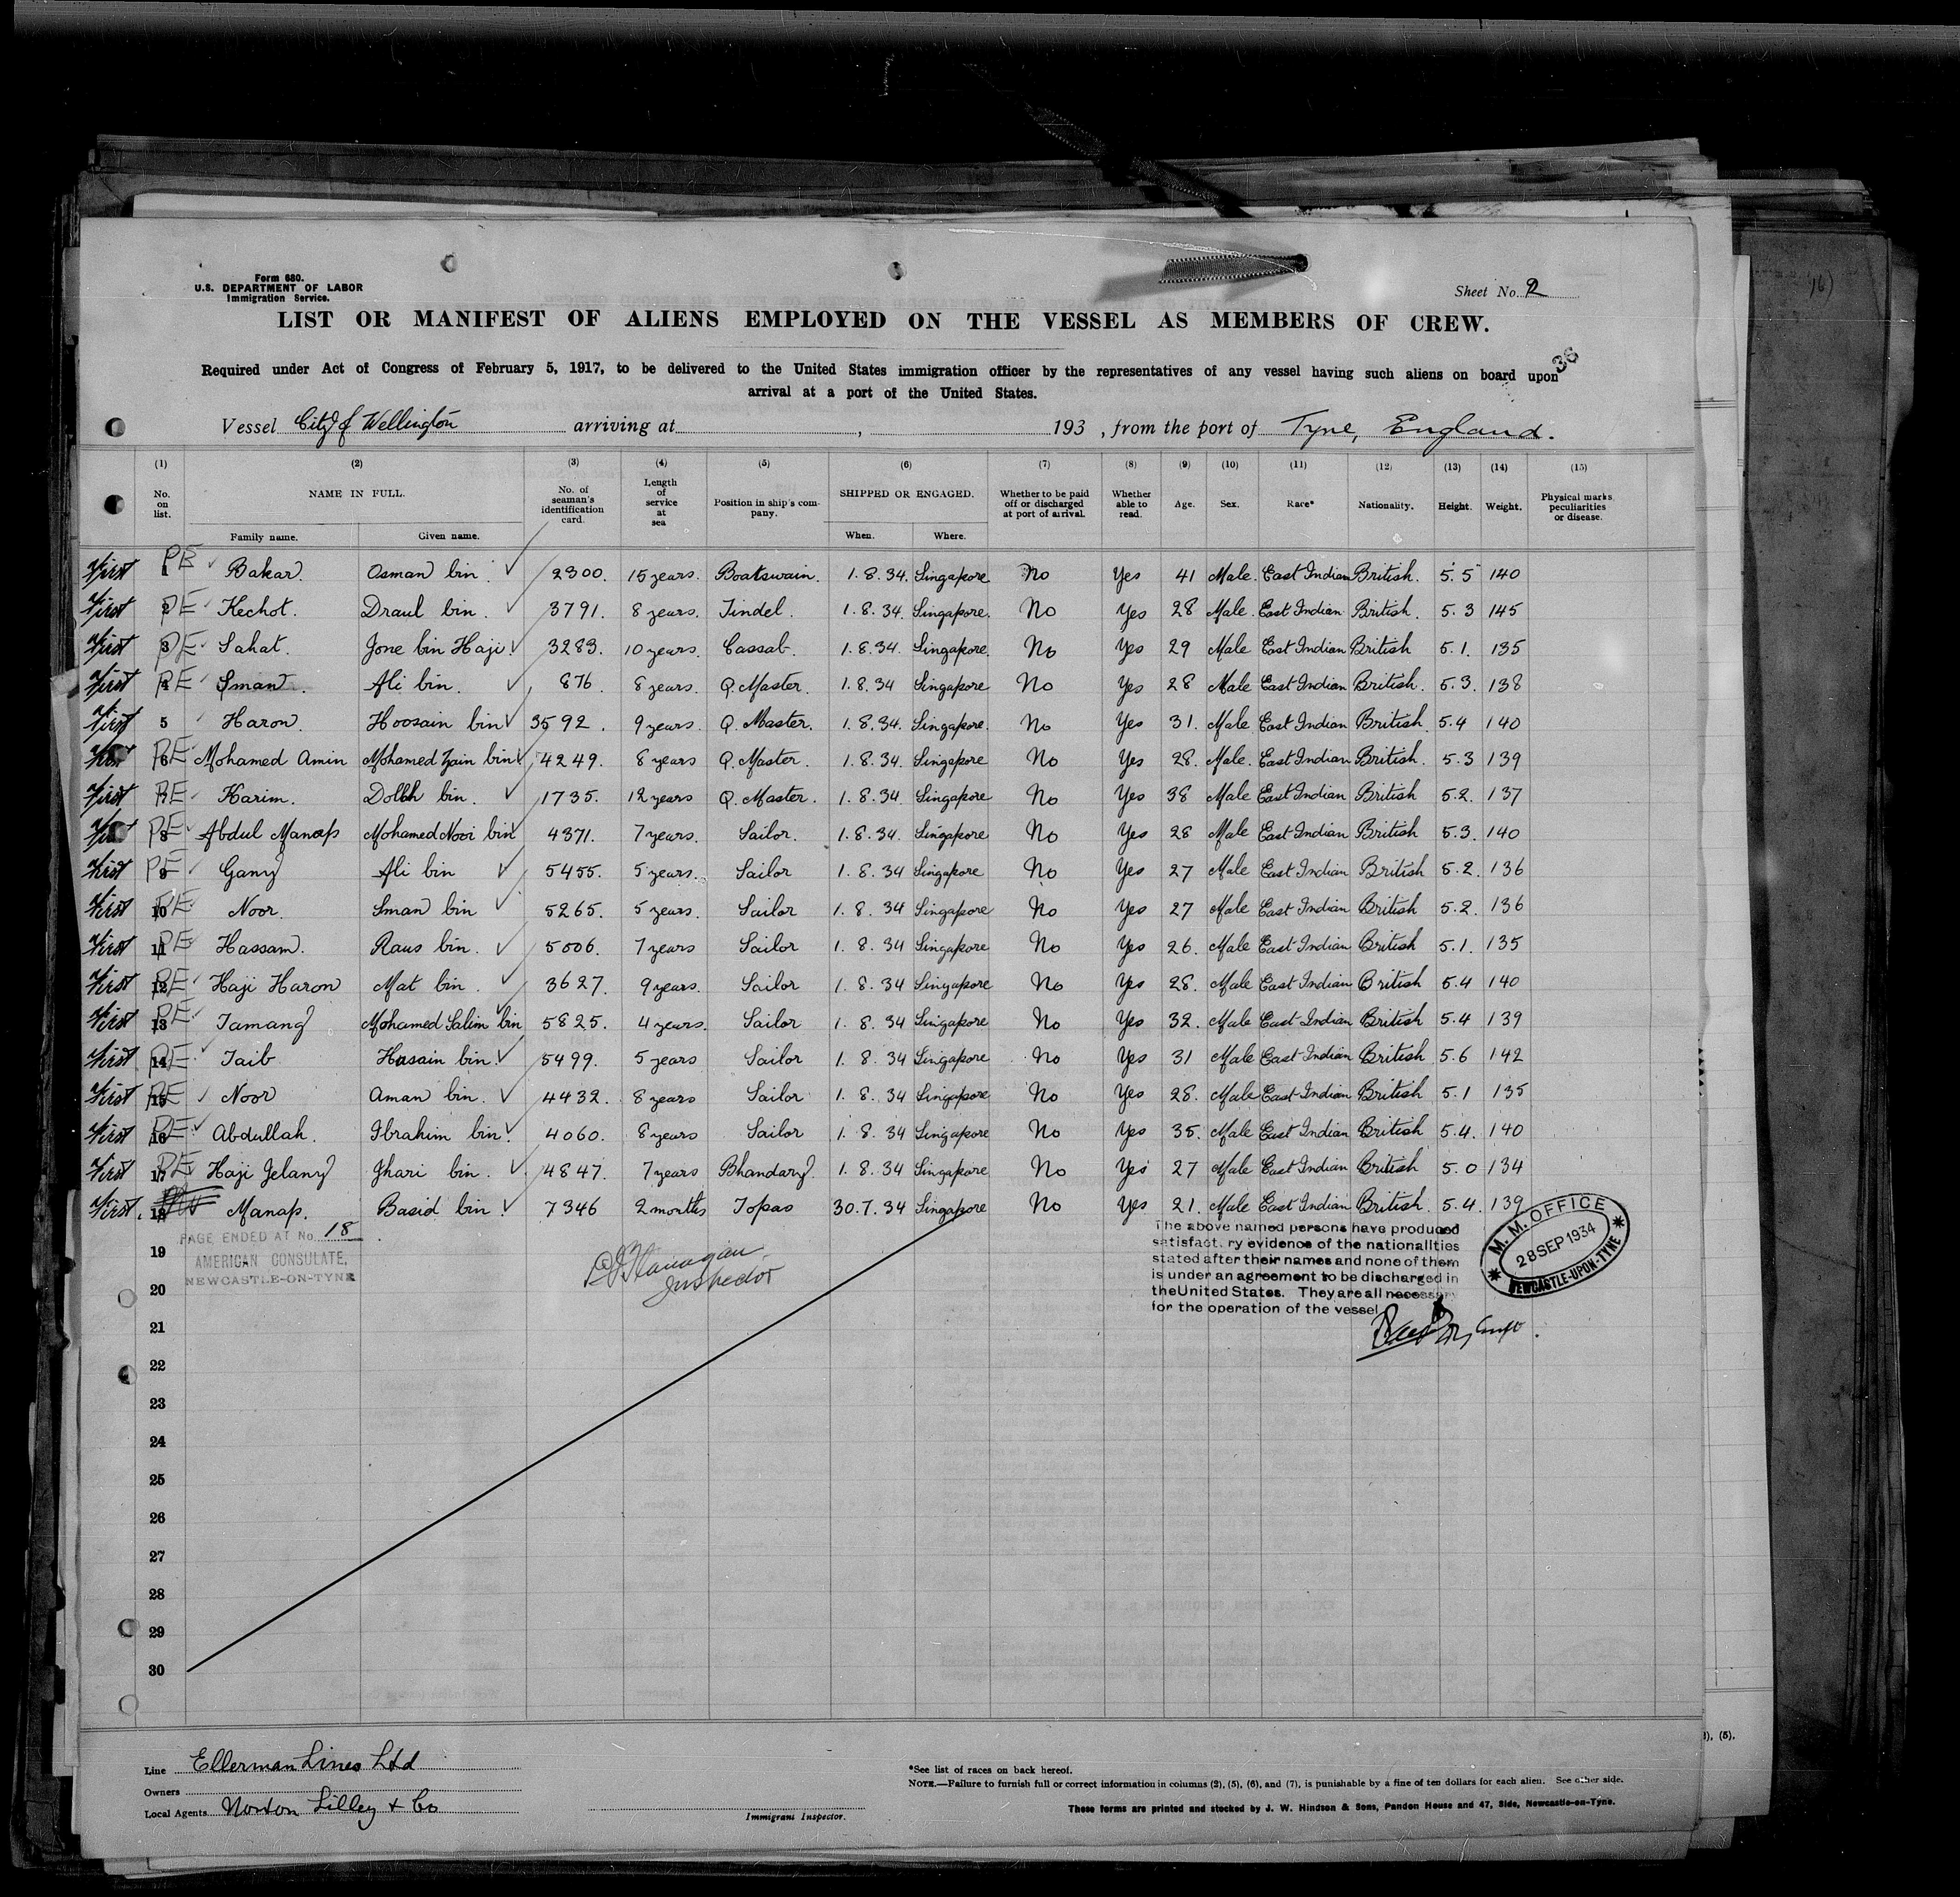 Form 680.
U.S. DEPARTMENT OF LABOR
Immigration Service.
Sheet No. 2
LIST OR MANIFEST OF ALIENS EMPLOYED ON THE VESSEL AS MEMBERS OF CREW.
36
Required under Act of Congress of February 5, 1917, to be delivered to the United States immigration officer by the representatives of any vessel having such aliens on board upon
arrival at a port of the United States.
Vessel City of Wellington arriving at , 193 , from the port of Tyne, England.
(1) (2) (3) (4) (5) (6) (7) (8) (9) (10) (11) (12) (13) (14) (15)
No. on list. NAME IN FULL. Family name. Given name. No. of seaman's identification card. Length of service at sea Position in ship's company. SHIPPED OR ENGAGED. When. Where. Whether to be paid off or discharged at port of arrival. Whether able to read. Age. Sex. Race* Nationality. Height. Weight. Physical marks, peculiarities or disease.
First 1 PE Bakar. Osman bin. 2300. 15 years. Boatswain. 1.8.34. Singapore No Yes 41 Male. East Indian British. 5.5 140
First 2 PE Kechot. Draul bin. 3791. 8 years. Tindel. 1.8.34. Singapore. No Yes 28 Male. East Indian British. 5.3 145
First 3 PE Sahat. Jone bin Haji. 3283. 10 years. Cassab. 1.8.34. Singapore. No Yes 29 Male East Indian British 5.1. 135
First 4 PE Sman. Ali bin. 876. 8 years. Q. Master. 1.8.34 Singapore No Yes 28 Male East Indian British. 5.3. 138
First 5 Haron. Hoosain bin 3592. 9 years. Q. Master. 1.8.34. Singapore. No Yes 31. Male East Indian British. 5.4 140
First 6 PE Mohamed Amin Mohamed Zain bin 4249. 8 years Q. Master. 1.8.34. Singapore No Yes 28. Male. East Indian British. 5.3 139
First 7 PE Karim. Dollah bin. 1735. 12 years Q. Master. 1.8.34 Singapore No Yes 38 Male East Indian British 5.2. 137
First 8 PE Abdul Manap Mohamed Noor bin 4371. 7 years. Sailor. 1.8.34. Singapore No Yes 28 Male East Indian British 5.3. 140
First 9 PE Gany Ali bin 5455. 5 years. Sailor 1.8.34 Singapore No Yes 27 Male East Indian British 5.2. 136
First 10 PE Noor. Sman bin 5265. 5 years. Sailor 1.8.34 Singapore No Yes 27 Male East Indian British 5.2. 136
First 11 PE Hassam. Raus bin. 5006. 7 years Sailor 1.8.34 Singapore No Yes 26. Male East Indian British 5.1. 135
First 12 PE Haji Haron Mat bin. 3627. 9 years. Sailor 1.8.34 Singapore No Yes 28. Male East Indian British 5.4 140
First 13 PE Tamang Mohamed Salim bin 5825. 4 years. Sailor 1.8.34 Singapore No Yes 32. Male East Indian British 5.4 139
First 14 PE Taib Hasain bin. 5499. 5 years Sailor 1.8.34 Singapore No Yes 31 Male East Indian British 5.6 142
First 15 PE Noor Aman bin. 4432. 8 years Sailor 1.8.34 Singapore No Yes 28. Male East Indian British 5.1 135
First 16 PE Abdullah. Ibrahim bin. 4060. 8 years Sailor 1.8.34 Singapore No Yes 35. Male East Indian British 5.4. 140
First 17 PE Haji Jelany Jhari bin. 4847. 7 years Bhandary. 1.8.34 Singapore No Yes 27 Male East Indian British 5.0 134
First. 18 Manap. Basid bin 7346 2 months Topas 30.7.34 Singapore No Yes 21. Male East Indian British. 5.4. 139
PAGE ENDED AT No. 18
AMERICAN CONSULATE,
NEWCASTLE-ON-TYNE
Flanagan
Inspector
The above named persons have produced
satisfact ry evidence of the nationalities
stated after their names and none of them
is under an agreement to be discharged in
the United States. They are all necessary
for the operation of the vessel
M. M. OFFICE
28 SEP 1934
NEWCASTLE-UPON-TYNE
19
20
21
22
23
24
25
26
27
28
29
30
Line Ellerman Lines Ltd
Owners
Local Agents Norton Lilley & Co
Immigrant Inspector.
*See list of races on back hereof.
NOTE.—Failure to furnish full or correct information in columns (2), (5), (6), and (7), is punishable by a fine of ten dollars for each alien. See other side.
These forms are printed and stocked by J. W. Hindson & Sons, Pandon House and 47, Side, Newcastle-on-Tyne.
), (5).